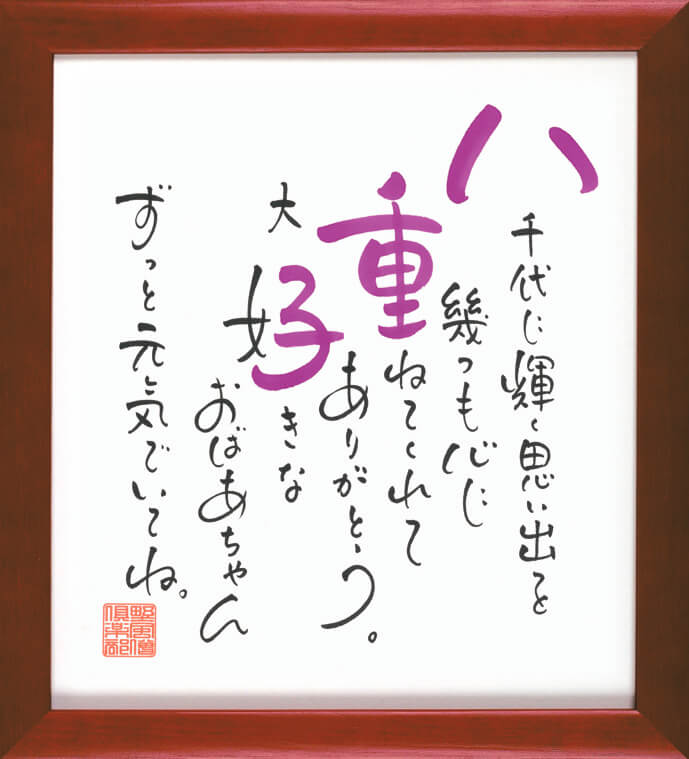 八千代に輝く思い出を
幾つも心に
重ねてくれて
ありがとう。
大好きな
おばあちゃん
ずっと元気でいてね。
野風僧
倶楽部